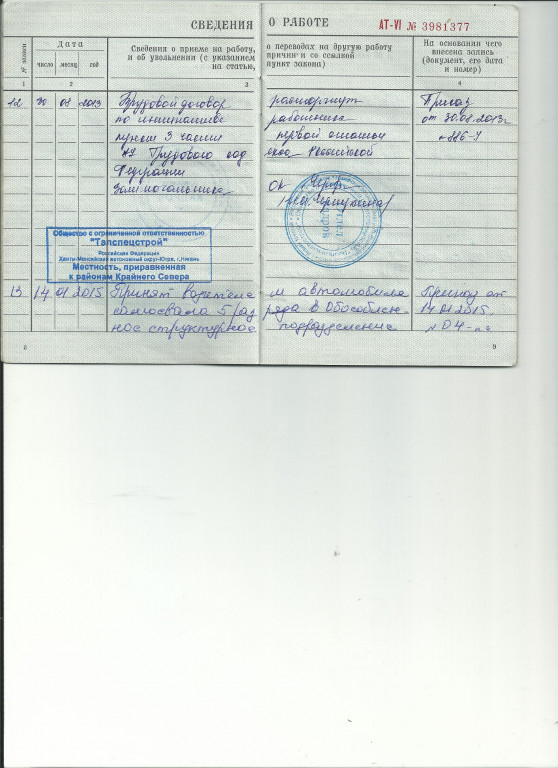 СВЕДЕНИЯ О РАБОТЕ
АТ-VI № 3981377
№ записи
Дата
число месяц год
Сведения о приеме на работу, о переводах на другую работу
и об увольнении (с указанием причин и со ссылкой
на статью, пункт закона)
На основании чего
внесена запись
(документ, его дата
и номер)
1 2 3 4
12 30 08 2013 Трудовой договор расторгнут Приказ
по инициативе работника от 30.08.2013г
пункт 3 части первой статьи
77 Трудового код екса Российской
Федерации
Зам начальника ОК
Общество с ограниченной ответственностью
"Талспецстрой"
Российская Федерация
Ханты-Мансийский автономный округ-Югра, г.Нягань
Местность, приравненная
к районам Крайнего Севера
13 14 01 2015 Принят водителе м автомобиля Приказ от
самосвала 5 раз ряда в Обособлен 14.01.2015
ное структурное подразделение № 04-
8 9